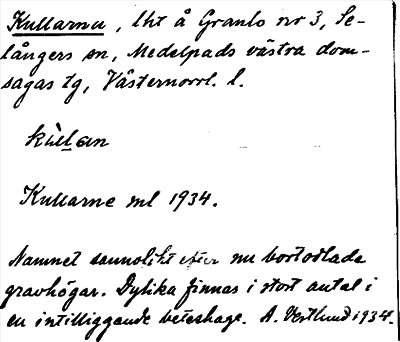 Kullarna, lht å Granlo nr 3, Se-
långers sn, Medelpads västra dom-
sagas tg, Västernorrl. l.
kùl̲an
Kullarne ml 1934.
Namnet sannolikt efter nu bortodlade
gravhögar. Dylika finnas i stort antal i
en intilliggande beteshage. A. Vestlund 1934.